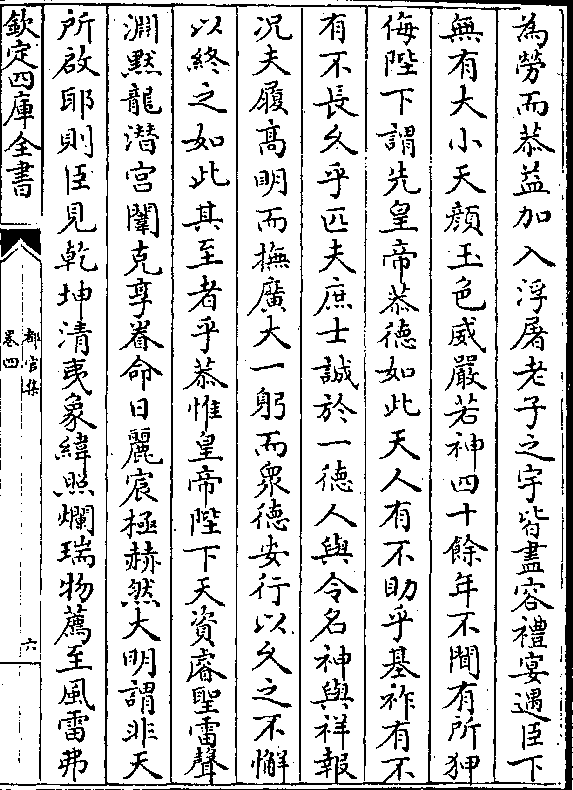 為勞而恭益加入浮屠老子之宇皆盡容禮宴遇臣下
無有大小天顔玉色威嚴若神四十餘年不聞有所狎
侮陛下謂先皇帝恭德如此天人有不助乎基祚有不
有不長久乎匹夫庶士誠於一德人與令名神與祥報
况夫履髙明而撫廣大一躬而衆德安行以久之不懈
以終之如此其至者乎恭惟皇帝陛下天資睿聖雷聲
淵黙龍潛宮闈克享眷命日麗宸極赫然大明謂非天
所啟耶則臣見乾坤清夷象緯照爛瑞物薦至風雷弗
欽定四庫全書
都官集
卷四
六